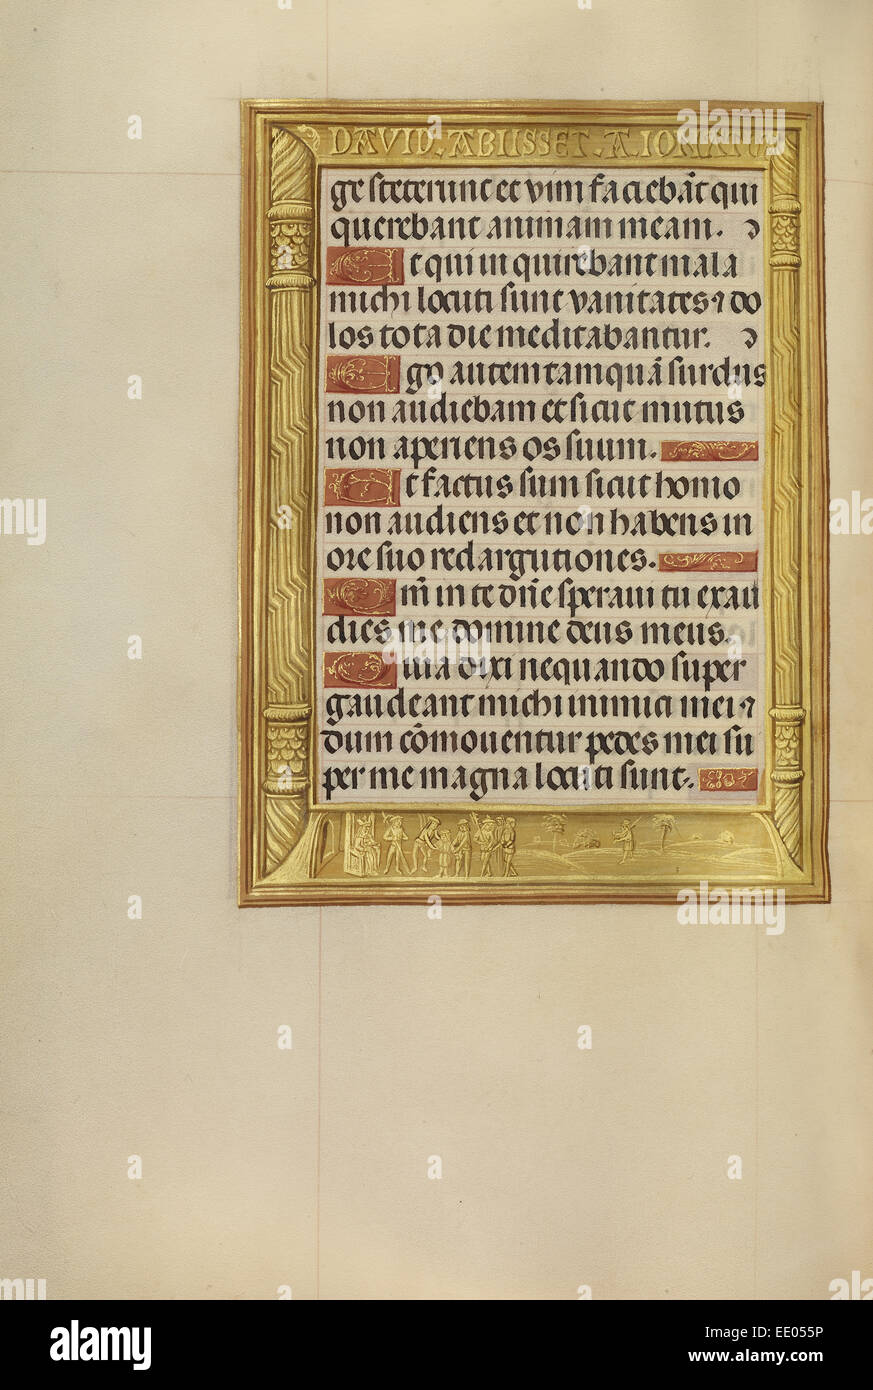 DAVID. ABIISSET. A. IONATA
ge steterunt et vim faciebāt qui
querebant animam meam.
Et qui inquirebant mala
michi locuti sunt vanitates ⁊ do
los tota die meditabantur.
Ego autem tamquā surdus
non audiebam et sicut mutus
non aperiens os suum.
Et factus sum sicut homo
non audiens et non habens in
ore suo redargutiones.
Qm̄ in te dn̄e speraui tu exau
dies me domine deus meus.
Quia dixi nequando super
gaudeant michi inimici mei ⁊
dum cōmouentur pedes mei su
per me magna locuti sunt.
alamy
Image ID: EE055P
www.alamy.com